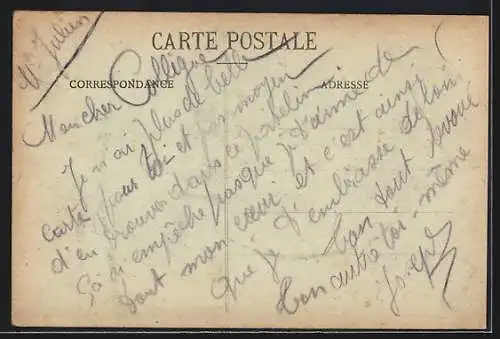 Mr Julien
CARTE POSTALE
CORRESPONDANCE
ADRESSE
Mon cher Collègue
Je n'ai plus de belle
carte pour toi et pas moyen
d'en trouver dans ce patelin
Ça n'empêche pas que je t'aime de
tout mon cœur et c'est ainsi
que je t'embrasse de loin
Ton tout dévoué
Ton autre toi-même
Joseph